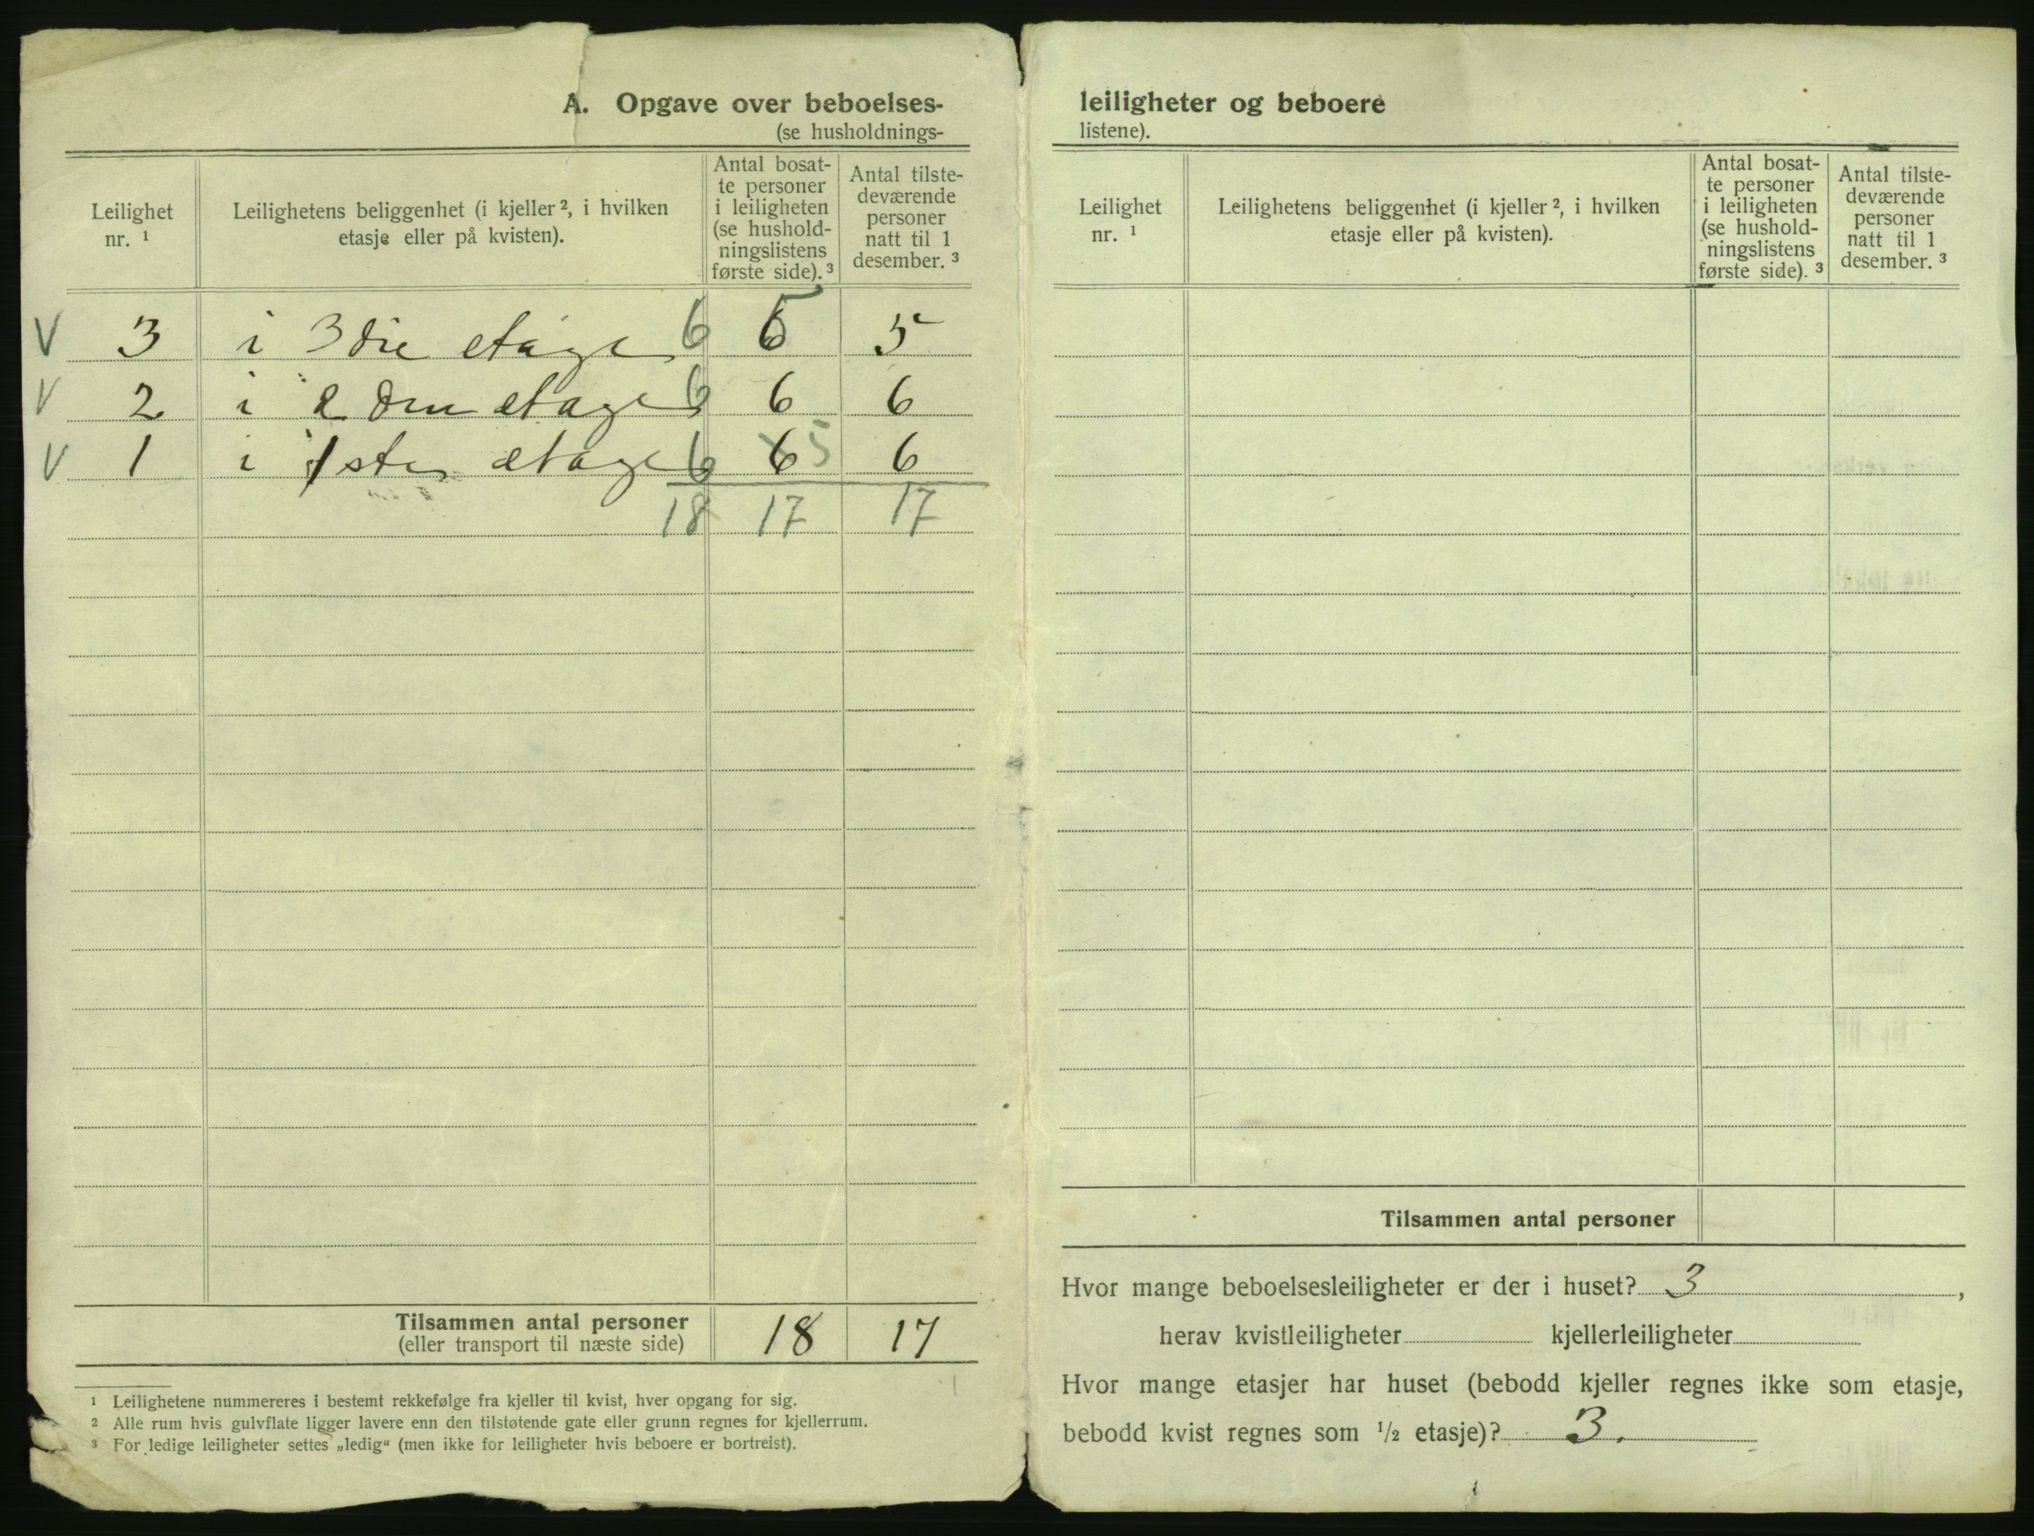 A. Opgave over beboelses-
(se husholdnings-
Leilighet
nr. ¹
Leilighetens beliggenhet (i kjeller ², i hvilken
etasje eller på kvisten).
Antal bosat-
te personer
i leiligheten
(se hushold-
ningslistens
første side). ³
Antal tilste-
deværende
personer
natt til 1
desember. ³
V 3 i 3die etage 6 5 5
V 2 i 2den etage 6 6 6
V 1 i 1ste etage 6 6 5 6
18 17 17
Tilsammen antal personer
(eller transport til næste side) 18 17
¹ Leilighetene nummereres i bestemt rekkefølge fra kjeller til kvist, hver opgang for sig.
² Alle rum hvis gulvflate ligger lavere enn den tilstøtende gate eller grunn regnes for kjellerrum.
³ For ledige leiligheter settes „ledig“ (men ikke for leiligheter hvis beboere er bortreist).
leiligheter og beboere
listene).
Leilighet
nr. ¹
Leilighetens beliggenhet (i kjeller ², i hvilken
etasje eller på kvisten).
Antal bosat-
te personer
i leiligheten
(se hushold-
ningslistens
første side). ³
Antal tilste-
deværende
personer
natt til 1
desember. ³
Tilsammen antal personer
Hvor mange beboelsesleiligheter er der i huset? 3 ,
herav kvistleiligheter kjellerleiligheter
Hvor mange etasjer har huset (bebodd kjeller regnes ikke som etasje,
bebodd kvist regnes som ½ etasje)? 3.